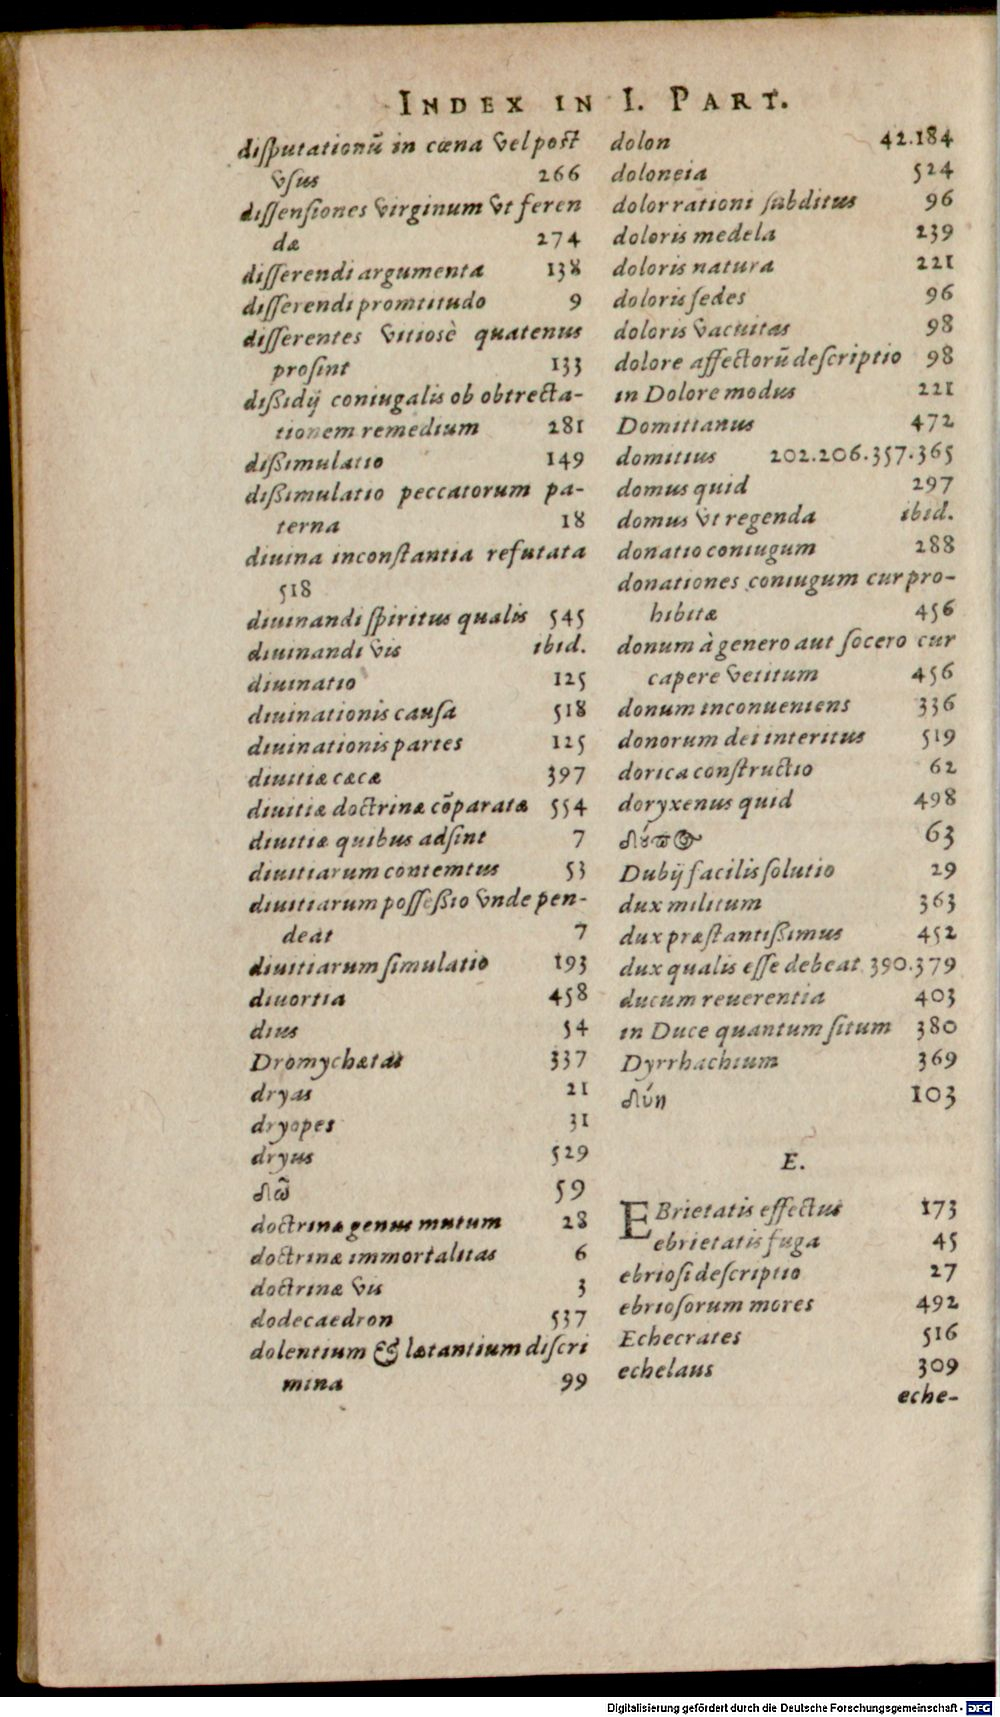 INDEX IN I. PART.
diſputationũ in cœna vel poſt
vſus 266
diſſenſiones virginum vt feren
dæ 274
diſſerendi argumenta 138
diſſerendi promtitudo 9
diſſerentes vitiosè quatenus
proſint 133
dißidij coniugalis ob obtrecta-
tionem remedium 281
dißimulatio 149
dißimulatio peccatorum pa-
terna 18
diuina inconſtantia refutata
518
diuinandi ſpiritus qualis 545
diuinandi vis ibid.
diuinatio 125
diuinationis cauſa 518
diuinationis partes 125
diuitiæ cæcæ 397
diuitiæ doctrinæ cõparatæ 554
diuitiæ quibus adſint 7
diuitiarum contemtus 53
diuitiarum poſſeßio vnde pen-
deat 7
diuitiarum ſimulatio 193
diuortia 458
dius 54
Dromychætas 337
dryas 21
dryopes 31
dryus 529
δῶ 59
doctrinæ genus mutum 28
doctrinæ immortalitas 6
doctrinæ vis 3
dodecaedron 537
dolentium & lætantium diſcri
mina 99
dolon 42.184
doloneia 524
dolor rationi ſubditus 96
doloris medela 239
doloris natura 221
doloris ſedes 96
doloris vacuitas 98
dolore affectorũ deſcriptio 98
in Dolore modus 221
Domitianus 472
domitius 202.206.357.365
domus quid 297
domus vt regenda ibid.
donatio coniugum 288
donationes coniugum cur pro-
hibitæ 456
donum à genero aut ſocero cur
capere vetitum 456
donum inconueniens 336
donorum dei interitus 519
dorica conſtructio 62
doryxenus quid 498
δούπος 63
Dubij facilis ſolutio 29
dux militum 363
dux præſtantißimus 452
dux qualis eſſe debeat 390.379
ducum reuerentia 403
in Duce quantum ſitum 380
Dyrrhachium 369
δύη 103
E.
EBrietatis effectus 173
ebrietatis fuga 45
ebrioſi deſcriptio 27
ebrioſorum mores 492
Echecrates 516
echelaus 309
eche-
Digitalisierung gefördert durch die Deutsche Forschungsgemeinschaft - DFG